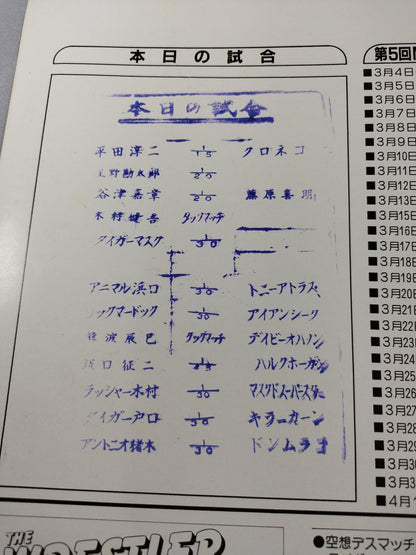 本日の試合
本日の試合
平田淳二 1/15 クロネコ
上野勘太郎 1/20
谷津嘉章 1/20 藤原喜明
木村健吾 タッグマッチ
タイガーマスク 1/30
アニマル浜口 1/30 トニーアトラス
ックマードック 1/30 アイアンシーク
波辰巳 タッグマッチ デイビーオハノン
口征二 1/45 ハルクホーガン
ラッシャー木村 1/30 マスクドスーパースター
タイガー戸口 1/30 キラーカーン
アントニオ猪木 1/30 ドンムラコ
第5回
■3月4日
■3月5日
■3月6日
■3月7日
■3月8日
■3月9日
■3月10日
■3月11日
■3月12日
■3月13日
■3月15日
■3月16日
■3月17日
■3月18日
■3月19日
■3月20日
■3月21日
■3月22日
■3月23日
■3月24日
■3月25日
■3月26日
■3月27日
■3月28日
■3月29日
■3月30
■3月3
■4月1
THE WRESTLER
●空想デスマッチ